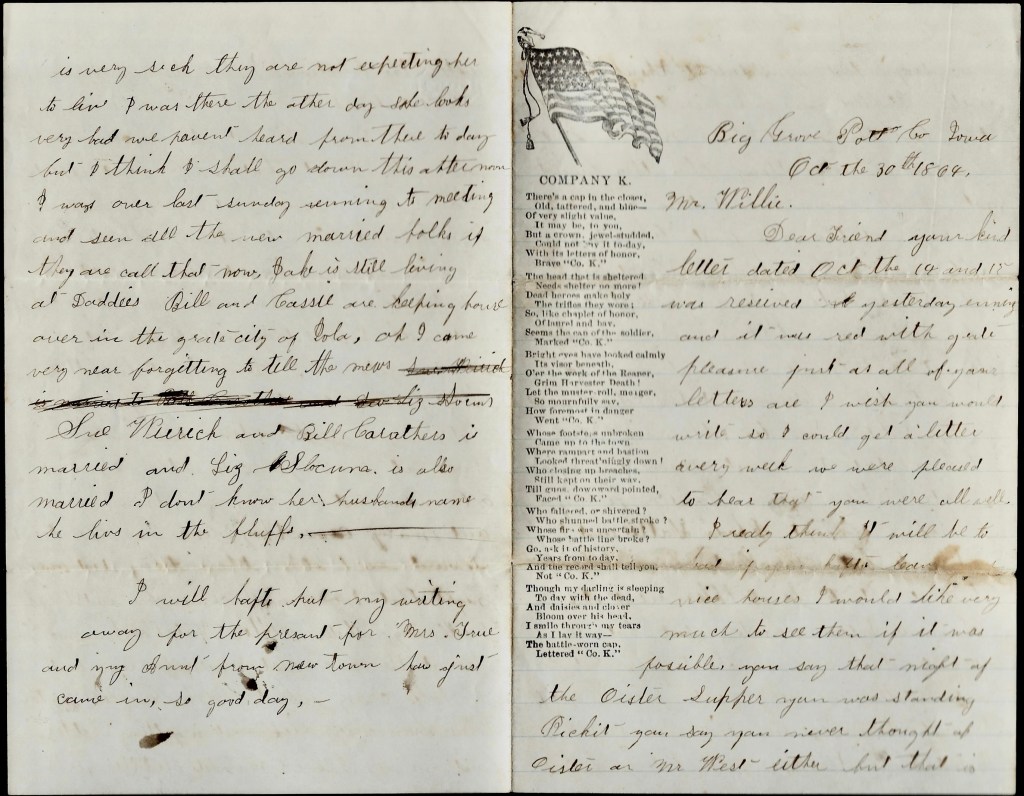 is very sick they are not expecting her
to liv I was there the other day she looks
very bad we havent heard from there to day
but I think I shall go down this afternoon
I was over last sunday evening to meeting
and seen all the new married folks if
they are call that now, Jake is still living
at Daddies Bill and Cassie are keeping house
over in the grate city of Iola, oh I came
very near forgitting to tell the news
is married to Liz Slocum
Sue Wierich and Bill Carathers is
married and Liz Slocum. is also
married I dont know her husbands name
he livs in the bluffs.
I will hafto put my writing
away for the presant for Mrs. True
and my Aunt from new town has just
came in, so good day, —
COMPANY K.
There's a cap in the closet,
Old, tattered, and blue—
Of very slight value,
It may be, to you,
But a crown, jewel-studded,
Could not buy it to-day,
With its letters of honor,
Brave "Co. K."
The head that it sheltered
Needs shelter no more!
Dead heroes make holy
The trifles they wore;
So, like chaplet of honor,
Of laurel and bay,
Seems the cap of the soldier,
Marked "Co. K."
Bright eyes have looked calmly
Its visor beneath,
O'er the work of the Reaper,
Grim Harvester Death!
Let the muster-roll, meager,
So mournfully say,
How foremost in danger
Went "Co. K."
Whose footsteps unbroken
Came up to the town
Where rampart and bastion
Looked threat'ningly down!
Who closing up breaches,
Still kept on their way,
Till guns, downward pointed,
Faced "Co. K."
Who faltered, or shivered?
Who shunned battle stroke?
Whose fire was uncertain?
Whose battle line broke?
Go, ask it of history,
Years from to-day,
And the record shall tell you,
Not "Co. K."
Though my darling is sleeping
To day with the dead,
And daisies and clover
Bloom over his head,
I smile through my tears
As I lay it way—
The battle-worn cap,
Lettered "Co. K."
Big Grove Pott Co Iowa
Oct the 30th 1864,
Mr. Willie.
Dear Friend your kind
letter dated Oct the 14 and 15
was received yesterday evning
and it was red with grate
pleasure just as all of your
letters are I wish you would
write so I could get a letter
avery week we were pleased
to hear that you were all well.
I realy think it will be to
nice houses I would like very
much to see them if it was
possible, you say that night of
the Oister Supper you was standing
Pickit you say you never thought of
Oister or Mr West either but that is